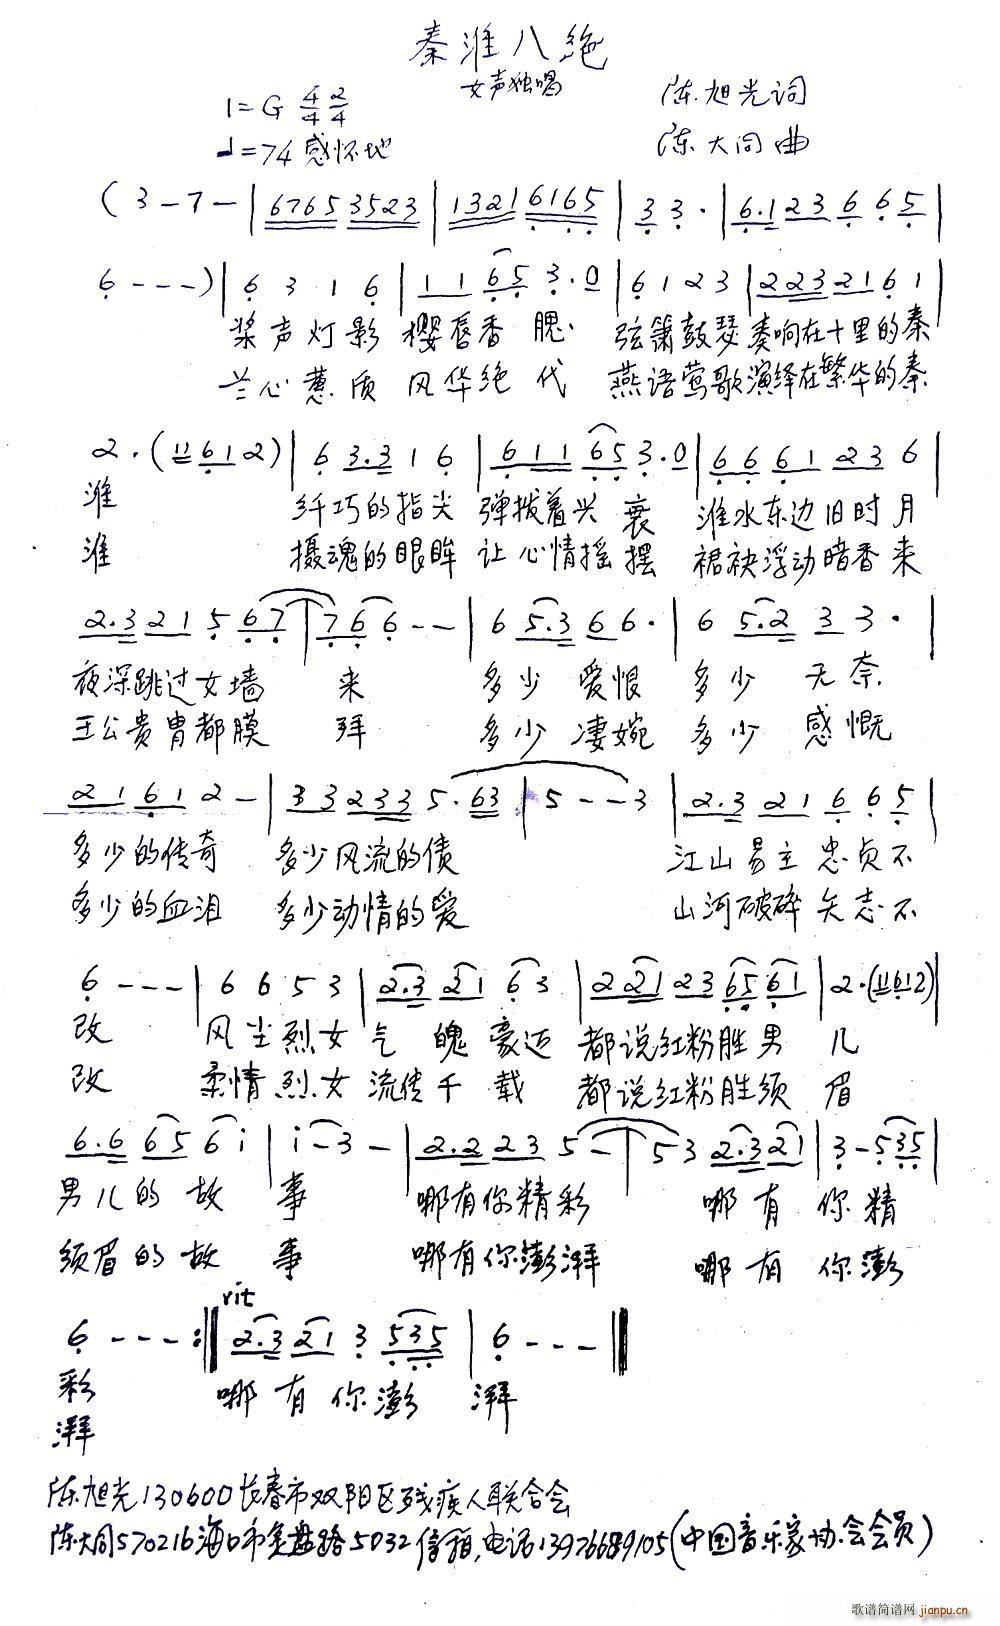 秦淮八绝
女声独唱
1=G 4/4 2/4
陈旭光词
♩=74 感怀地
陈大同曲
( 3 - 7 - | 6765 3523 | 1321 6165 | 3 3 · | 6·1 23 6 6 5 |
6 - - - ) | 6 3 1 6 | 1 1 65 3·0 | 6 1 2 3 | 2 23 21 6 1 |
桨声灯影 樱唇香腮 弦箫鼓瑟奏响在十里的秦
兰心蕙质 风华绝代 燕语莺歌演绎在繁华的秦
2 · ( 11 6 1 2 ) | 6 3·3 1 6 | 6 1 1 65 3·0 | 6 6 6 1 2 3 6 |
淮 纤巧的指尖 弹拨着兴衰 淮水东边旧时月
淮 摄魂的眼眸 让心情摇摆 裙袂浮动暗香来
2·3 2 1 5 6 7 | 7 6 6 - - | 6 5·3 6 6 · | 6 5·2 3 3 · |
夜深跳过女墙 来 多少爱恨 多少无奈
王公贵胄都膜 拜 多少凄婉 多少感慨
2 1 6 1 2 - | 3 3 2 3 3 5 · 63 | 5 - - 3 | 2·3 2 1 6 6 5 |
多少的传奇 多少风流的债 江山易主忠贞不
多少的血泪 多少动情的爱 山河破碎矢志不
6 - - - | 6 6 5 3 | 2·3 21 6 3 | 2 21 23 65 61 | 2·(11612) |
改 风尘烈女 气魄豪迈 都说红粉胜男 儿
改 柔情烈女 流传千载 都说红粉胜须 眉
6·6 65 6 i | i - 3 - | 2·2 2 3 5 - | 5 3 2·3 21 | 3 - 5 35 |
男儿的故 事 哪有你精彩 哪有你精
须眉的故 事 哪有你澎湃 哪有你澎
rit
6 - - - :‖ 2·3 21 3 535 | 6 - - - ‖
彩 哪有你澎 湃
湃
陈旭光130600长春市双阳区残疾人联合会
陈大同570216海口市金盘路5032信箱,电话13976689105(中国音乐家协会会员)
歌谱简谱网 jianpu.cn